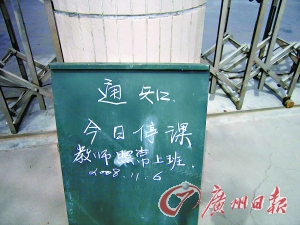 通知
今日停课
教师照常上班.
2008.11.6
廣州日报